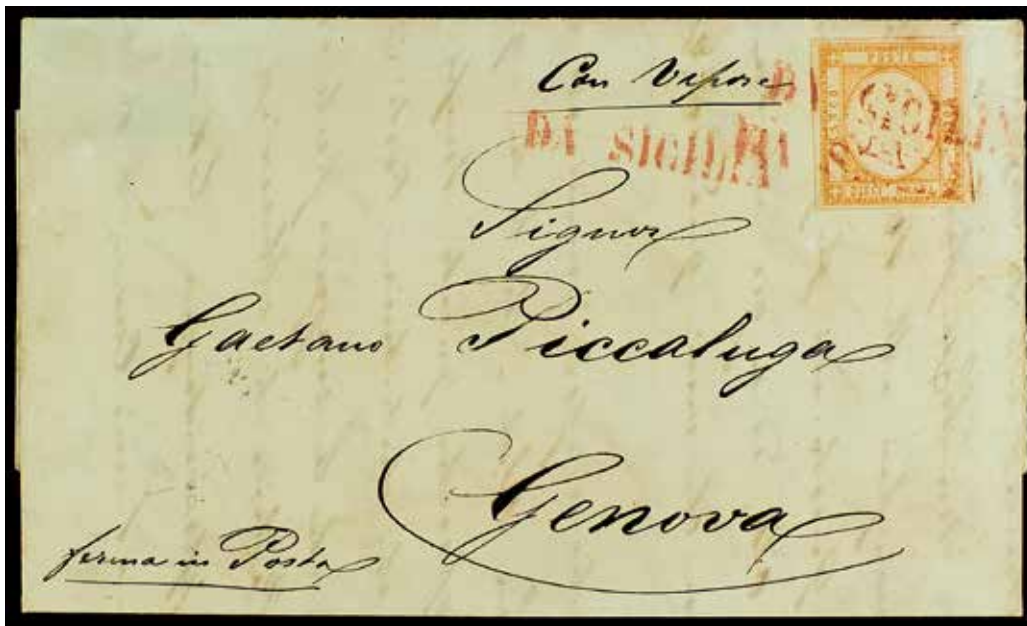 Con Vapore
POSTA
DA SICILIA
Signor
Gaetano Piccaluga
Genova
ferma in Posta